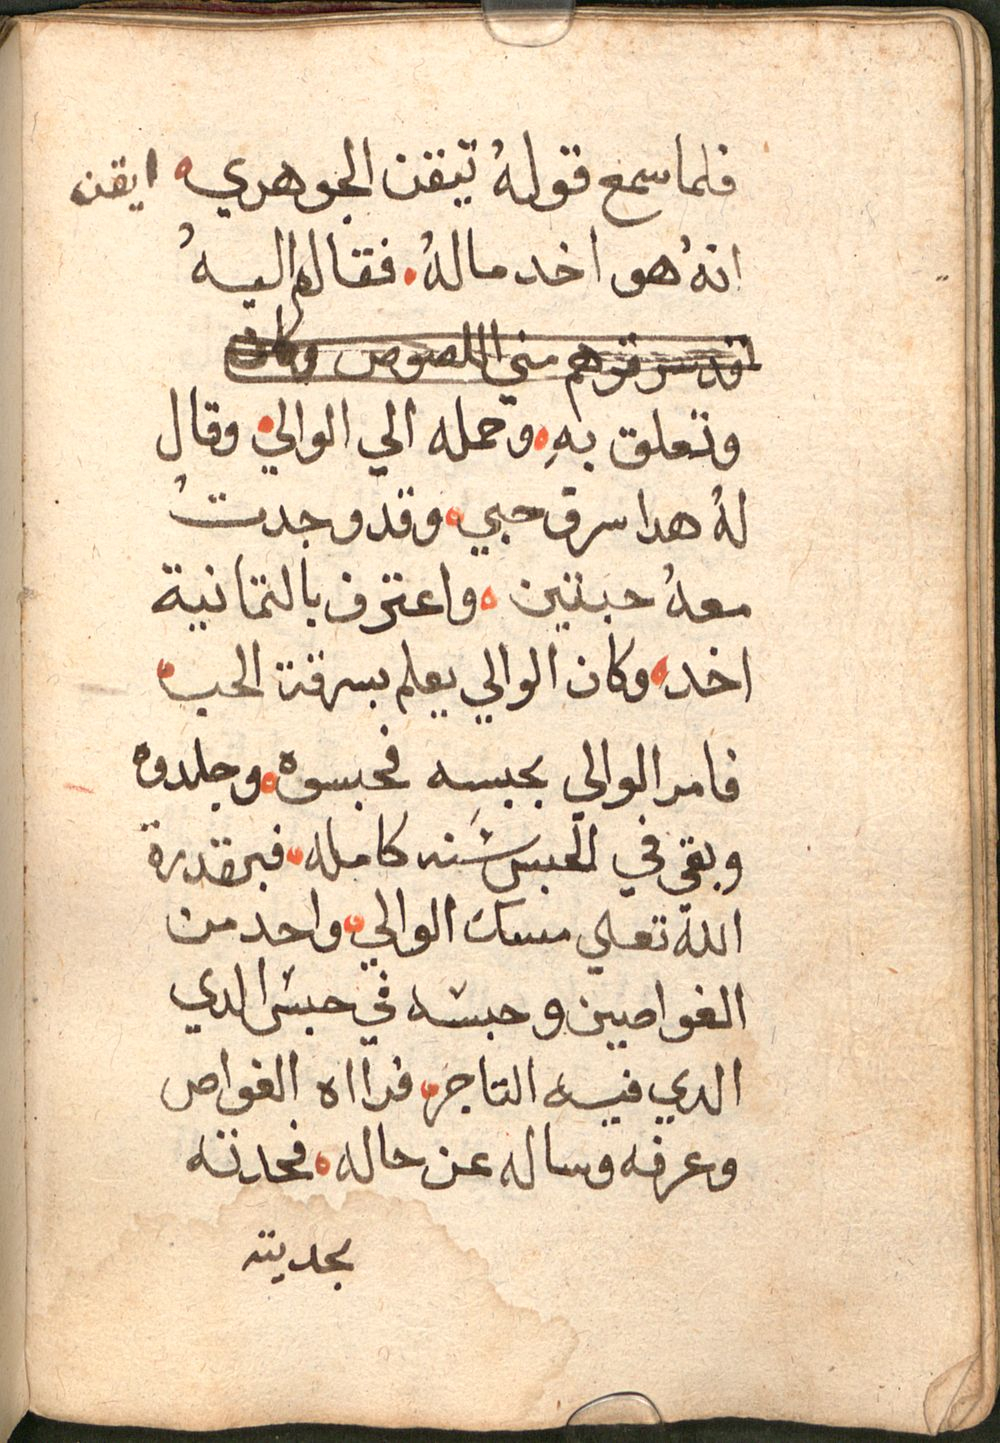 فلما سمع قولهُ تيقن الجوهري ايقن
انهُ هو اخد مالهُ. فقال لهم اليهُ
قد سرقوهم مني اللصوص وكان
وتعلق بهِ وحمله الي الوالي وقال
لهُ هدا سرق حبي وقد وجدتُ
معهُ حبتين واعترف بالتمانية
اخد وكان الوالي يعلم بسرقة الحب
فامر الوالي بحبسه فحبسوه وجلدوه
وبقي في الحبس سنه كامله فبمقدرة
الله تعلي مسك الوالي واحد من
الغواصين وحبسه في حبس الدي
الدي فيه التاجر فرااه الغواص
وعرفه وساله عن حاله فحدته
بحديته